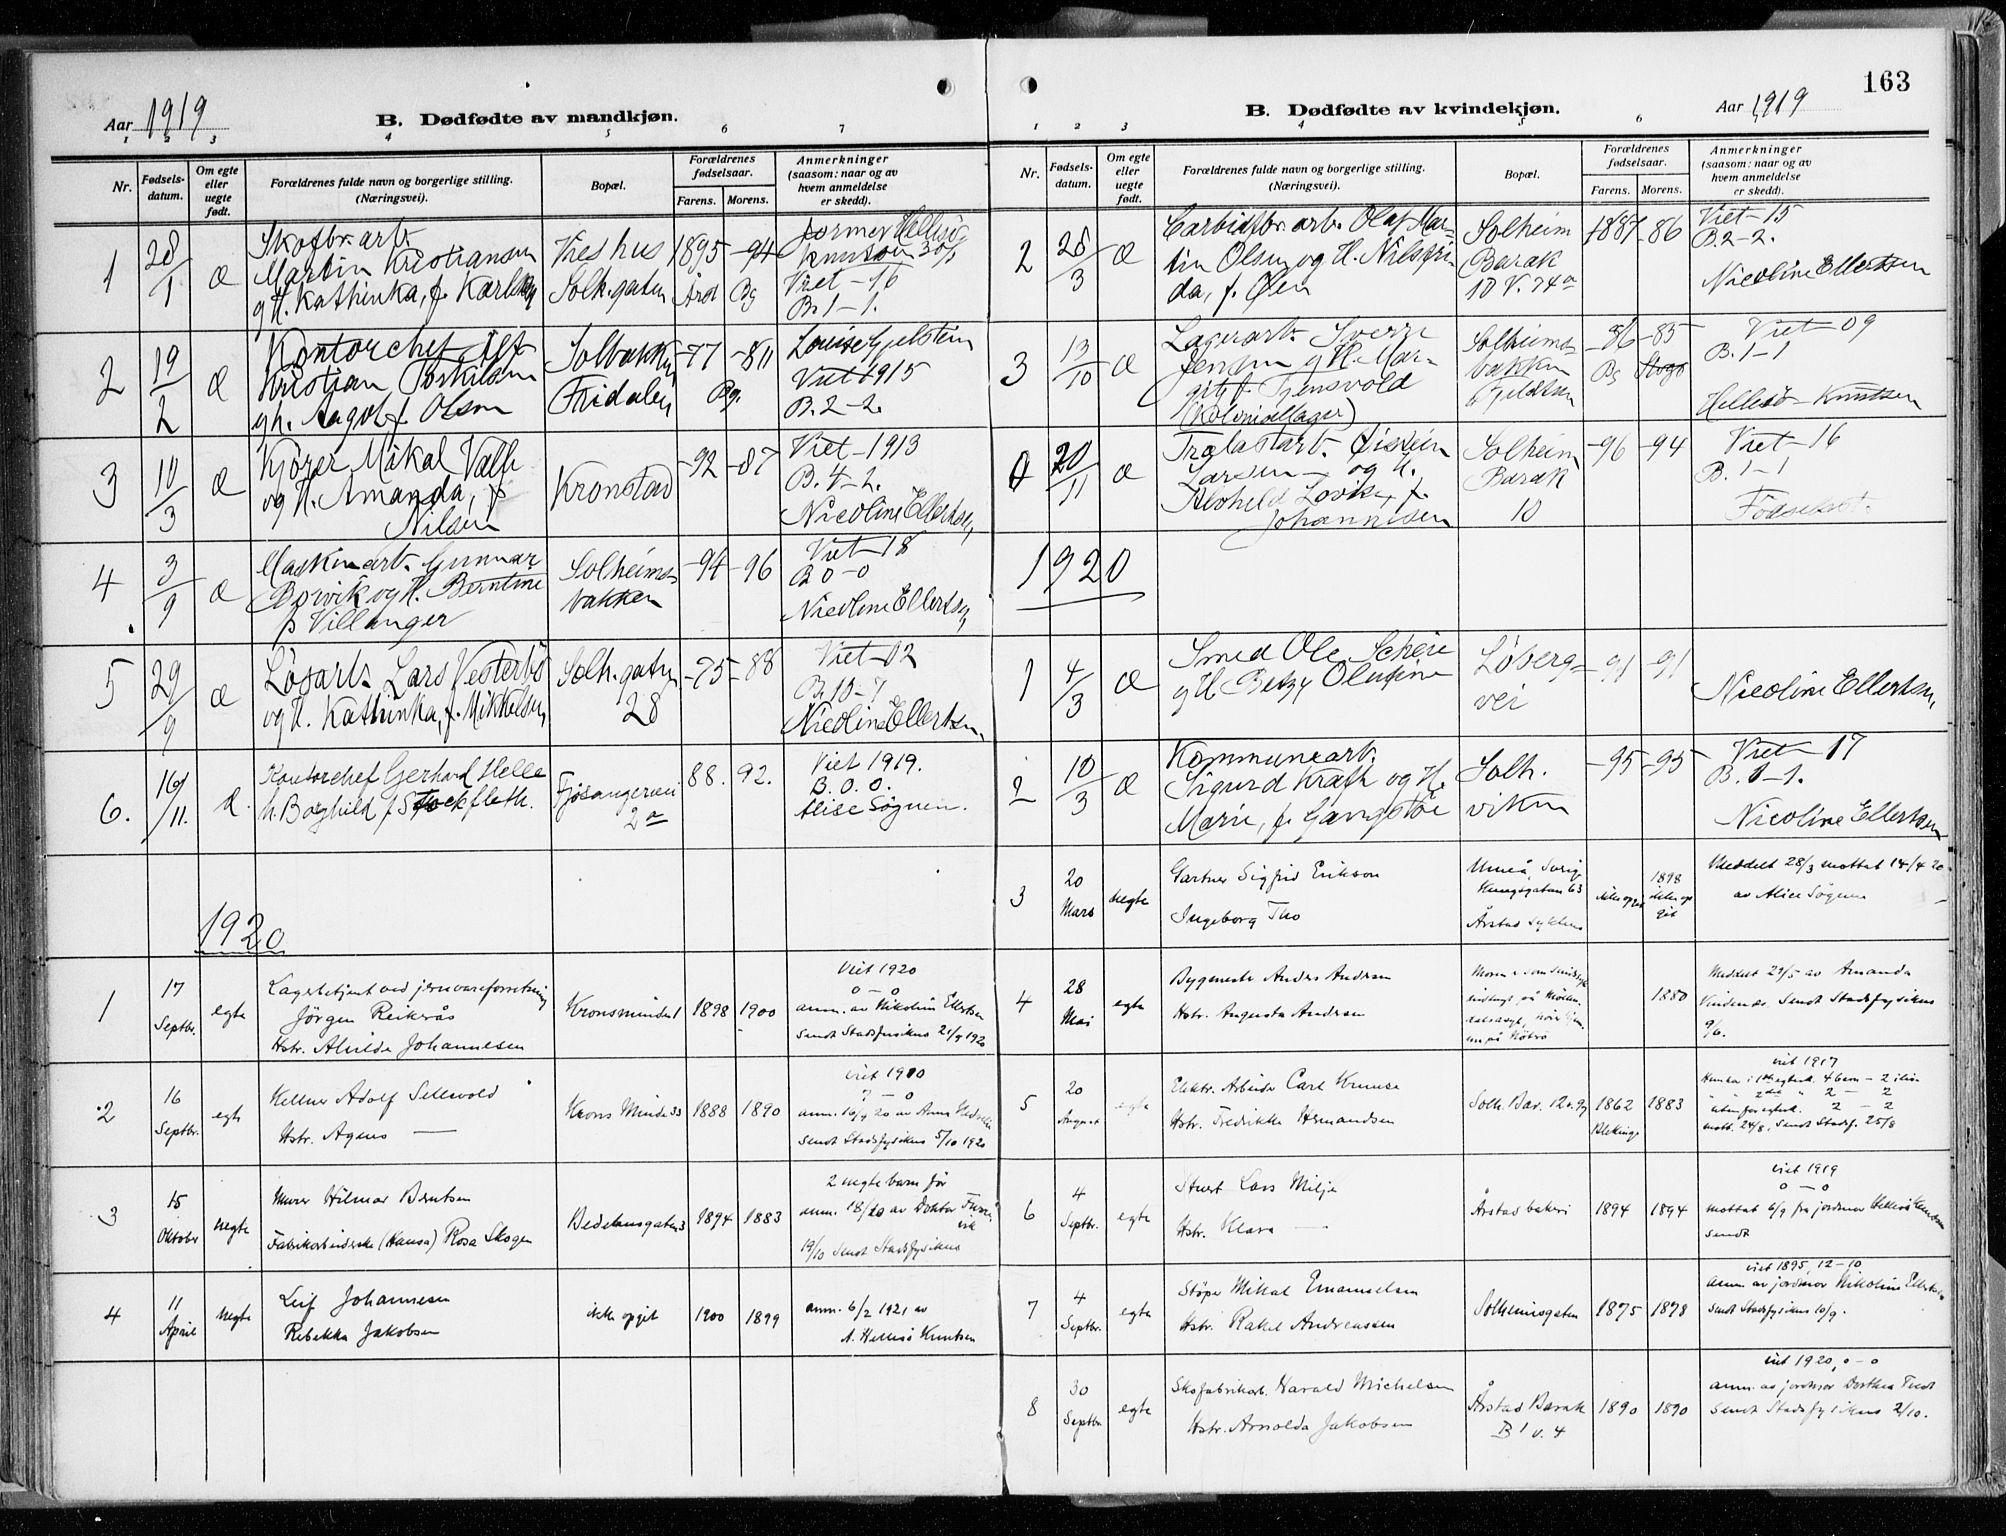 163
Aar 1919
B. Dødfødte av mandkjøn.
1 2 3 4 5 6 7
Nr.
Fødsels-
datum.
Om egte
eller
uegte
født.
Forældrenes fulde navn og borgerlige stilling.
(Næringsvei).
Bopæl.
Forældrenes
fødselsaar.
Farens. Morens.
Anmerkninger
(saasom: naar og av
hvem anmeldelse
er skedd).
1
28/1
Æ
Martin Kristiansen
og H. Kathinka, f. Karlsen
Solh.gaten
1895 -94
Bg
Knutsen 30/1
Viet -16
B. 1-1.
2
19/2
Æ
Kontorchef
Kristian Torkilsen
gh. Aagot f. Olsen
Solbakken
Fridalen
-77 -811
Bg.
Louise Gjelstein
Viet 1915
B. 2-2.
3
10/3
Æ
Kjører Mikal Valle
og H. Amanda, f.
Nilsen
Kronstad
-92 -87
Viet -1913
B. 4-2.
Nicoline Ellertsen,
4
3/9
Æ
Maskinarb. Gunnar
Børvik og H. Berntine
f. Villanger
Solheims-
bakken
-94 -96
Viet -18
B 0-0
Nicoline Ellertsen,
5
29/9
Æ
Løsarb. Lars Vesterbø
og H. Kathinka, f. Mikkelsen,
Solh.gaten
28
-75 -88
Viet -02
B. 10-7
Nicoline Ellertsen,
6.
16/11.
Æ.
Kontorchef Gerhard Helle
h. Borghild f. Stockfleth.
Fjøsangervei
2a
88. 92.
Viet 1919.
B. 0. 0.
Alise Søgnen.
1920
1
17
Septbr.
egte
Lagerbetjent ved jernvareforretning
Jörgen Reikerås
Hstr. Alvilde Johannesen
Kronsminde 1
1898 1900
Viet 1920
0-0
anm. av Nikoline Ellertsen
sendt Stadsfysikus 21/9 1920
2
16
Septbr.
egte
Kellner Adolf Sellevold
Hstr. Agnes —
Krons Minde 33
1888 1890
viet 1910
7-0
sendt Stadsfysikus 5/10 1920
3
15
Oktober
uegte
Murer Hilmar Berntsen
Fabrikarbeiderske (Hansa) Rosa Skogen
1894 1883
2 uegte barn før
19/10 sendt Stadsfysikus
4
11
April
uegte
Leif Johannesen
Rebekka Jakobsen
ikke opgit
1900 1899
anm. 6/2 1921 av
A. Hellesö Knutsen
B. Dødfødte av kvindekjøn.
Aar 1919
1 2 3 4 5 6
Nr.
Fødsels-
datum.
Om egte
eller
uegte
født.
Forældrenes fulde navn og borgerlige stilling.
(Næringsvei).
Bopæl.
Forældrenes
fødselsaar.
Farens. Morens.
Anmerkninger
(saasom: naar og av
hvem anmeldelse
er skedd).
2
28/3
Æ
Carbidfbr.arb. Olaf Mar-
tin Olsen og H. Nilsfri-
da, f. Øen
Solheim
Barak
10 V. 74a
1887 -86
Viet -15
B. 2-2.
Nicoline Ellertsen
3
13/10
Æ
Lagerarb. Sverre
Jensen g H. Mar-
git f. Tjensvold
(Koloniallager)
Solheims-
bakken
-86 -85
Bg
Viet -09
B. 1-1
Hellesö-Knutsen
20/11
Æ
Trælastarb. Øistein
Larsen og H.
Alvhild Lovise, f.
Johannesen
Solheim
Barak
10
-96 -94
Viet -16
B. 1-1
1920
1
4/3
Æ
Smed Ole Scheie
g H Betzy Olufine
Løberg-
vei
-91 -91
Nicoline Ellertsen,
2
10/3
Æ
Kommunearb.
Sigurd Krafh og H.
Marie, f. Gangstøe
Solh.
viken
-95 -95
Viet -17
B. 1-1.
Nicoline Ellertsen
3
20
Mars
uegte
Gartner Sigfrid Erikson
Ingeborg Tho
Umeå, Sverige
Kungsgatan 63
Årstad sykehus
ikke opgit
1898
ikke op
git
Meddelt 28/3 mottat 14/4 20
av Alice Søgnen
4
28
Mai
egte
Bygmester Anders Andersen
Hstr. Augusta Andersen
1880
Meddelt 29/5 av Amanda
Vindenes. Sendt Stadsfysikus
9/6.
5
20
August
egte
Elektr. Arbeider Carl Krause
Hstr. Fredrikke Hermandsen
Solh. Bar. 12 v. 9
1862 1883
Blekinge
viet 1917
utenfor egtesk. 2 – 2
mott. 24/8, sendt Stadsf. 25/8
6
4
Septbr.
egte
Stuert Lars Milje
Hstr. Klara —
Årstad bakeri
1894 1894
viet 1919
0-0
mottat 6/9 fra jordmor Hellesö Knutsen
sendt
7
4
Septbr.
egte
Støper Mikal Emanuelsen
Hstr. Rakel Andreassen
Solheimsgaten
1875 1878
viet 1895, 12-10
anm. av jordmor Nikoline Ellertsen
sendt Stadsfysikus 10/9.
8
30
Septbr.
egte
Skofabrikarb. Harald Michelsen
Hstr. Arnolda Jakobsen
Årstad Barak
B 1 v. 4
1890 1890
viet 1920, 0-0
anm. av jordmor Dorthea Tvedt
sendt Stadsfysikus 2/10.